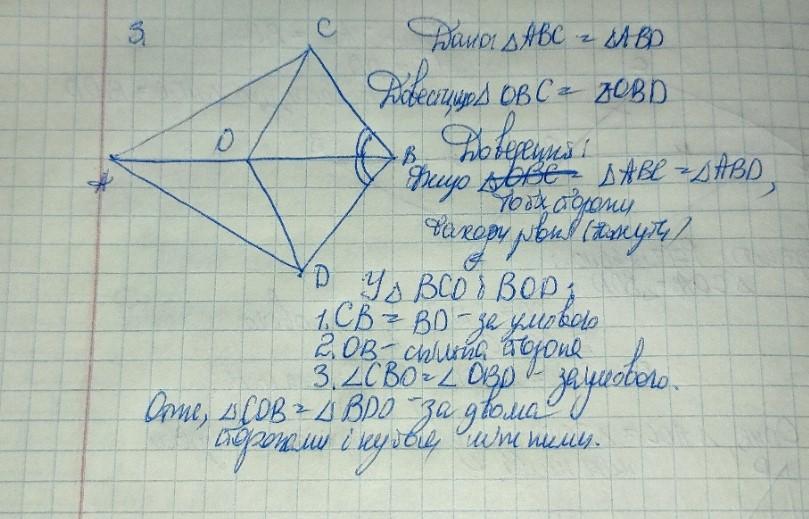 3.
C
Дано: △ABC = △ABD
Довести: △OBC = △OBD
O
B
A
Доведення:
Якщо △OBC = △ABC = △ABD,
то їх сторони
також рівні (й кути)
D
У △ BCO і BOD:
1. CB = BD - за умовою
2. OB - спільна сторона
3. ∠CBO = ∠OBD - за умовою.
Отже, △COB = △BDO - за двома
сторонами і кутом між ними.